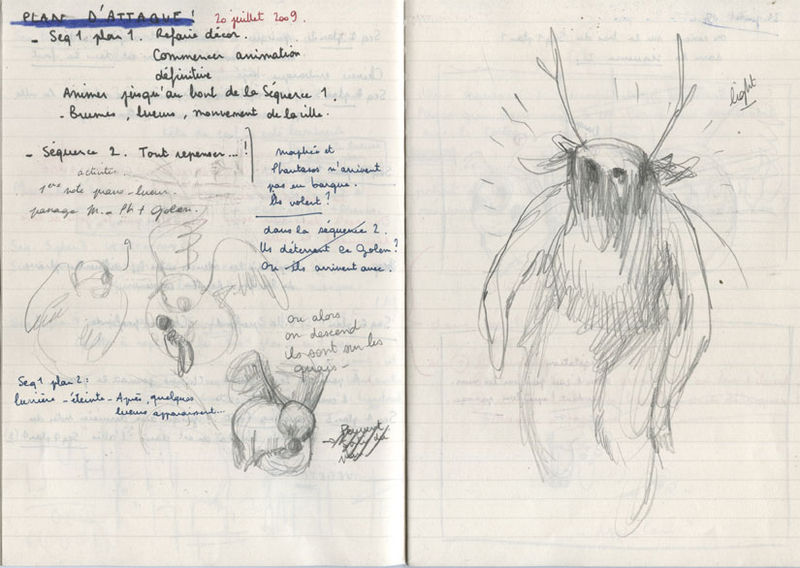 PLAN D'ATTAQUE !
20 juillet 2009.
- Seq 1 plan 1. Refaire décor.
Commencer animation
définitive
Animer jusqu'au bout de la Séquence 1.
- Brumes, lueurs, mouvement de la ville.
- Séquence 2. Tout repenser... !
activités...
1ère note piano-lueur.
passage M. - Ph + Golem.
morphée et
Phantasos n'arrivent
pas en barque.
Ils volent ?
dans la séquence 2.
Ils déterrent ce Golem ?
Ou ils arrivent avec.
ou alors
on descend
ils sont sur les
quais -
Seq 1 plan 2 :
lumière - éteinte - Après, quelques
lueurs apparaissent...
light